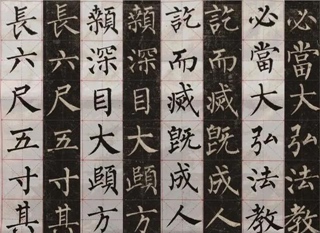 必當大弘法教
必當大弘法教
訖而滅旣成人
訖而滅旣成人
顙深目大頤方
顙深目大頤方
長六尺五寸其
長六尺五寸其